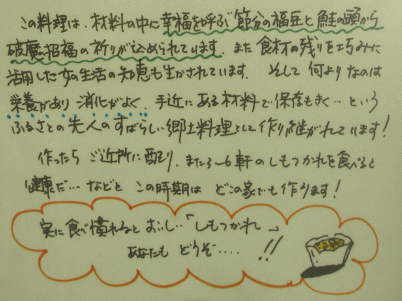 この料理は、材料の中に幸福を呼ぶ節分の福豆と鮭の頭から
破魔招福の祈りが込められています。また食材の残りを巧みに
活用した女の生活の知恵も生かされています。そして何よりなのは
栄養があり消化がよく、手近にある材料で保存もきく…という
ふるさとの先人のすばらしい郷土料理として作り継がれています!
作ったらご近所に配り、また5~6軒のしもつかれを食べると
健康だ…などと この時期は どこの家でも作ります!
実に食べ慣れるとおいし…「しもつかれ」
あなたも どうぞ….!!